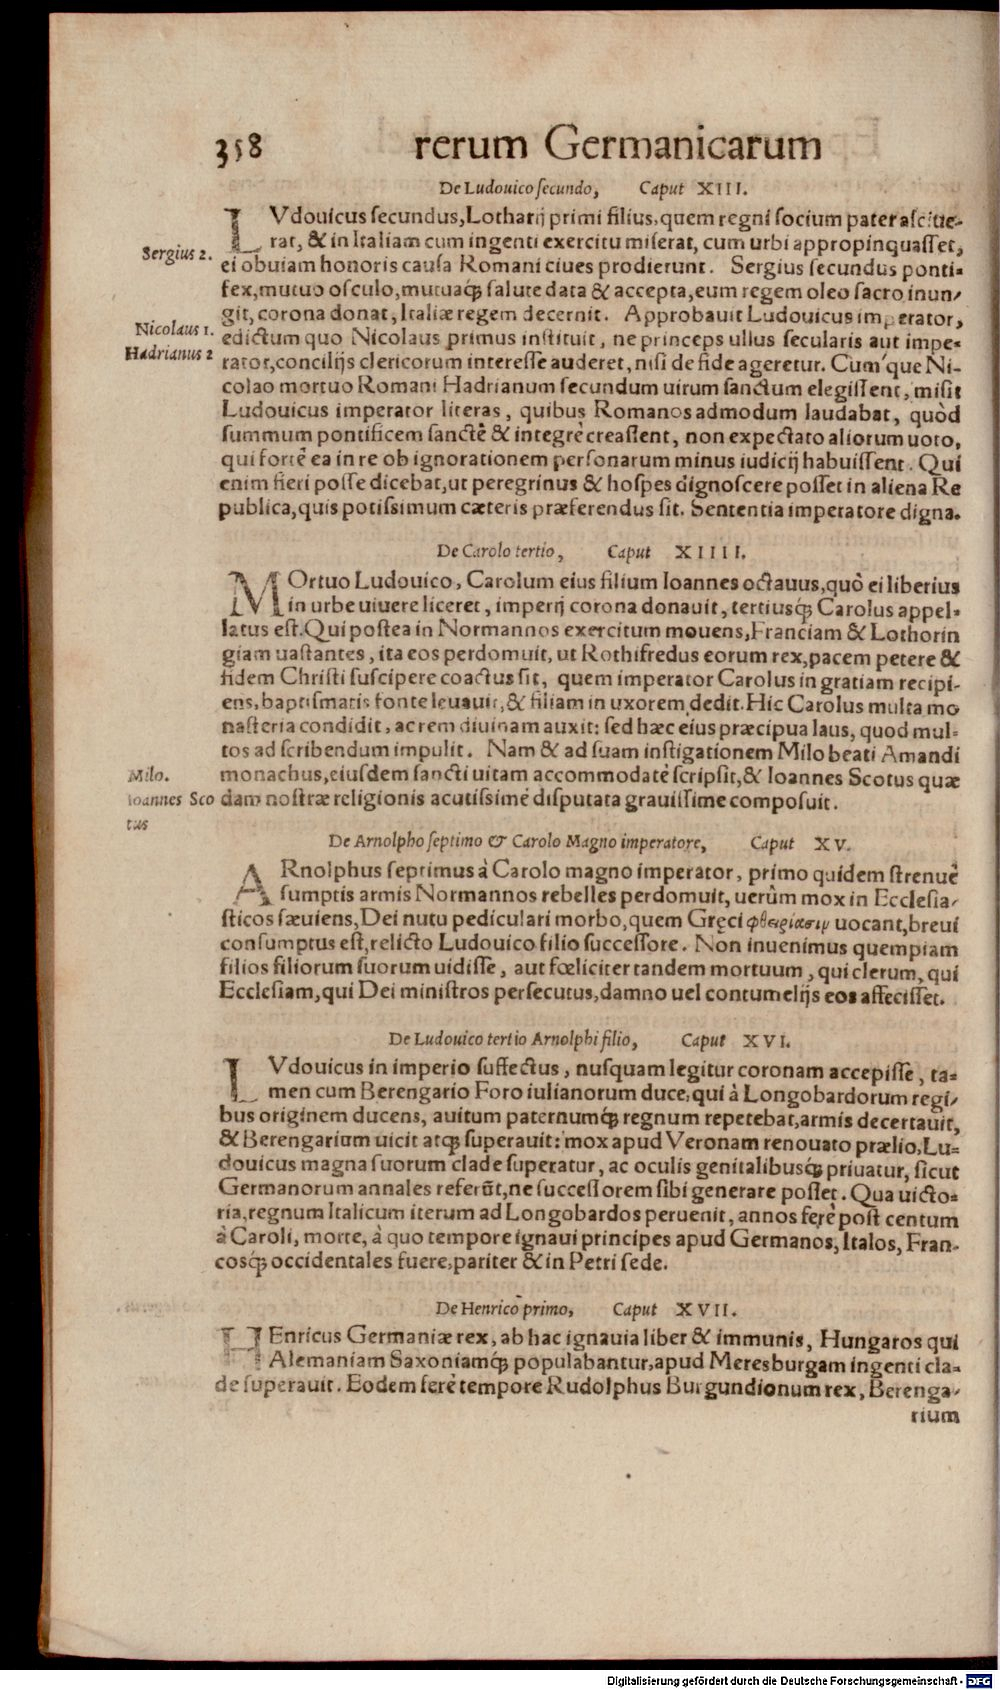 358 rerum Germanicarum
De Ludouico secundo, Caput XIII.
LVdouicus secundus, Lotharij primi filius, quem regni socium pater asciue-
rat, & in Italiam cum ingenti exercitu miserat, cum urbi appropinquasset,
Sergius 2.
ei obuiam honoris causa Romani ciues prodierunt. Sergius secundus ponti-
fex, mutuo osculo, mutuaq́; salute data & accepta, eum regem oleo sacro inun-
git, corona donat, Italiæ regem decernit. Approbauit Ludouicus imperator,
Nicolaus 1.
edictum quo Nicolaus primus instituit, ne princeps ullus secularis aut impe-
Hadrianus 2
rator, concilijs clericorum interesse auderet, nisi de fide ageretur. Cum'que Ni-
colao mortuo Romani Hadrianum secundum uirum sanctum elegissent, misit
Ludouicus imperator literas, quibus Romanos admodum laudabat, quòd
summum pontificem sanctè & integrè creassent, non expectato aliorum uoto,
qui fortè ea in re ob ignorationem personarum minus iudicij habuissent. Qui
enim fieri posse dicebat, ut peregrinus & hospes dignoscere posset in aliena Re
publica, quis potissimum cæteris præferendus sit. Sententia imperatore digna.
De Carolo tertio, Caput XIIII.
MOrtuo Ludouico, Carolum eius filium Ioannes octauus, quò ei liberius
in urbe uiuere liceret, imperij corona donauit, tertiusq́; Carolus appel-
latus est. Qui postea in Normannos exercitum mouens, Franciam & Lothorin
giam uastantes, ita eos perdomuit, ut Rothifredus eorum rex, pacem petere &
fidem Christi suscipere coactus sit, quem imperator Carolus in gratiam recipi-
ens, baptismatis fonte leuauit, & filiam in uxorem dedit. Hic Carolus multa mo
nasteria condidit, ac rem diuinam auxit: sed hæc eius præcipua laus, quod mul-
tos ad scribendum impulit. Nam & ad suam instigationem Milo beati Amandi
Milo.
monachus, eiusdem sancti uitam accommodatè scripsit, & Ioannes Scotus quæ
Ioannes Sco
tus
dam nostræ religionis acutissimè disputata grauissime composuit.
De Arnolpho septimo & Carolo Magno imperatore, Caput XV.
ARnolphus septimus à Carolo magno imperator, primo quidem strenuè
sumptis armis Normannos rebelles perdomuit, uerùm mox in Ecclesia-
sticos sæuiens, Dei nutu pediculari morbo, quem Gręci φθειρίασιν uocant, breui
consumptus est, relicto Ludouico filio successore. Non inuenimus quempiam
filios filiorum suorum uidisse, aut fœliciter tandem mortuum, qui clerum, qui
Ecclesiam, qui Dei ministros persecutus, damno uel contumelijs eos affecisset.
De Ludouico tertio Arnolphi filio, Caput XVI.
LVdouicus in imperio suffectus, nusquam legitur coronam accepisse, ta-
men cum Berengario Foro iulianorum duce, qui à Longobardorum regi-
bus originem ducens, auitum paternumq́; regnum repetebat, armis decertauit,
& Berengarium uicit atq́; superauit: mox apud Veronam renouato prælio, Lu-
douicus magna suorum clade superatur, ac oculis genitalibusq́; priuatur, sicut
Germanorum annales referūt, ne successorem sibi generare posset. Qua uicto-
ria, regnum Italicum iterum ad Longobardos peruenit, annos ferè post centum
à Caroli, morte, à quo tempore ignaui principes apud Germanos, Italos, Fran-
cosq́; occidentales fuere, pariter & in Petri sede.
De Henrico primo, Caput XVII.
HEnricus Germaniæ rex, ab hac ignauia liber & immunis, Hungaros qui
Alemaniam Saxoniamq́; populabantur, apud Meresburgam ingenti cla-
de superauit. Eodem ferè tempore Rudolphus Burgundionum rex, Berenga-
rium
Digitalisierung gefördert durch die Deutsche Forschungsgemeinschaft - DFG